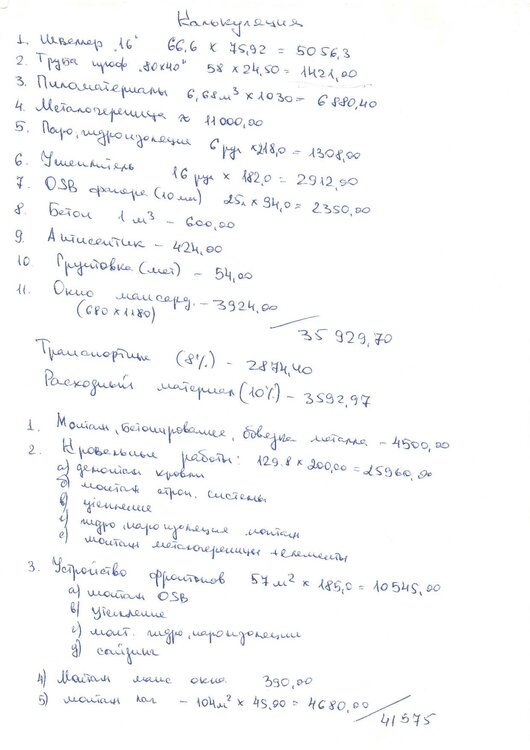 Калькуляция
1. Швеллер „16" 66,6 × 75,92 = 5056,3
2. Труба проф „80х40" 58 × 24,50 = 1421,00
3. Пиломатериалы 6,68м³ × 1030 = 6880,40
4. Металочерепица ≈ 11000,00
5. Паро, гидроизоляция 6 рул × 218,0 = 1308,00
6. Утеплитель 16 рул × 182,0 = 2912,00
7. OSB фанера (10мм) 25л × 94,0 = 2350,00
8. Бетон 1 м³ – 600,00
9. Антисептик – 424,00
10. Грунтовка (мет) – 54,00
11. Окно мансард. – 3924,00
(680 × 1180)
35 929,70
Транспортные (8%) – 2874,40
Расходный материал (10%) – 3592,97
1. Монтаж, бетонирование, обвязка металла – 4500,00
2. Кровельные работы: 129.8 × 200,00 = 25960,00
а) демонтаж кровли
б) монтаж строп. системы
в) утепление
г) гидро, пароизоляция монтаж
е) монтаж металочерепицы + элементы
3. Устройство фронтонов 57м² × 185,0 = 10545,00
а) монтаж OSB
в) утепление
г) монт. гидро, пароизоляции
д) сайдинг
4) Монтаж манс окна 390,00
5) монтаж лаг – 104м² × 45,00 = 4680,00
41575